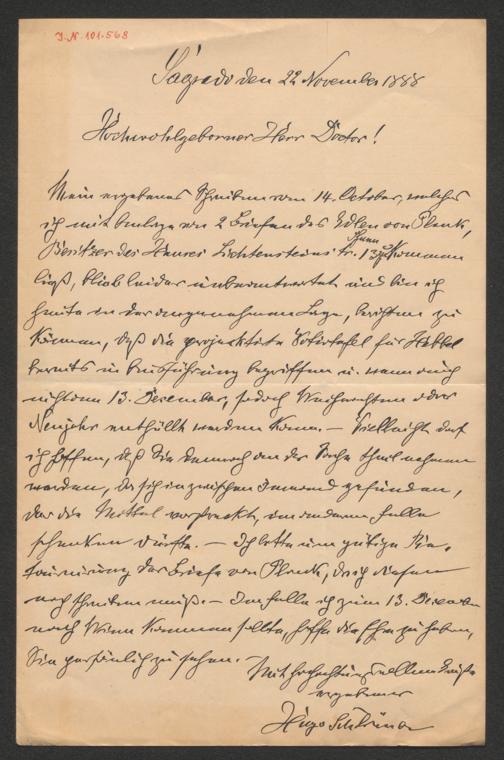 J.N. 101.568
Sagrado den 22 November 1888
Hochwohlgeborner Herr Doctor!
Mein ergebenes Schreiben vom 14. October, welches
ich mit Beilage von 2 Briefen des Edlen von Plenk,
Besitzer des Hauses Liechtensteinstr. 13 Ihnen zukommen
ließ, blieb leider unbeantwortet und bin ich
heute in der angenehmen Lage, berichten zu
können, daß die projektirte Votivtafel für Hebbel
bereits in Ausführung begriffen u. wenn auch
nicht am 13. December, jedoch Weihnachten oder
Neujahr enthüllt werden kann. – Vielleicht darf
ich hoffen, daß Sie dennoch an der Sache theilnehmen
werden, da sich inzwischen Jemand gefunden,
der die Mittel vorstreckt, im anderen Falle
schenken dürfte. – Ich bitte um gütige Re-
tournirung der Briefe von Plenk, da ich diesem
noch schreiben muß. – Im Falle ich zum 13. December
nach Wien kommen sollte, hoffe die Ehre zu haben,
Sie persönlich zu sehen.
Mit hochachtungsvollem Gruße
ergebener
Hugo